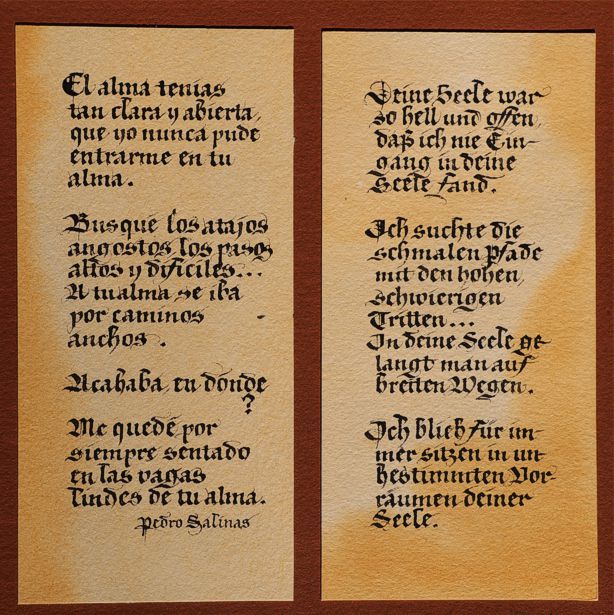 El alma tenias
tan clara y abierta,
que yo nunca pude
entrarme en tu
alma.
Busque los atajos
angostos, los pasos
altos y dificiles...
A tu alma se iba
por caminos
anchos.
Acababa en dónde
?
Me quedé por
siempre sentado
en las vagas
lindes de tu alma.
Pedro Salinas
Deine Seele war
so hell und offen,
daß ich nie Ein-
gang in deine
Seele fand.
Ich suchte die
schmalen Pfade
mit den hohen,
schwierigen
Tritten...
In deine Seele ge-
langt man auf
breiten Wegen.
Ich blieb für im-
mer sitzen in un-
bestimmten Vor-
räumen deiner
Seele.